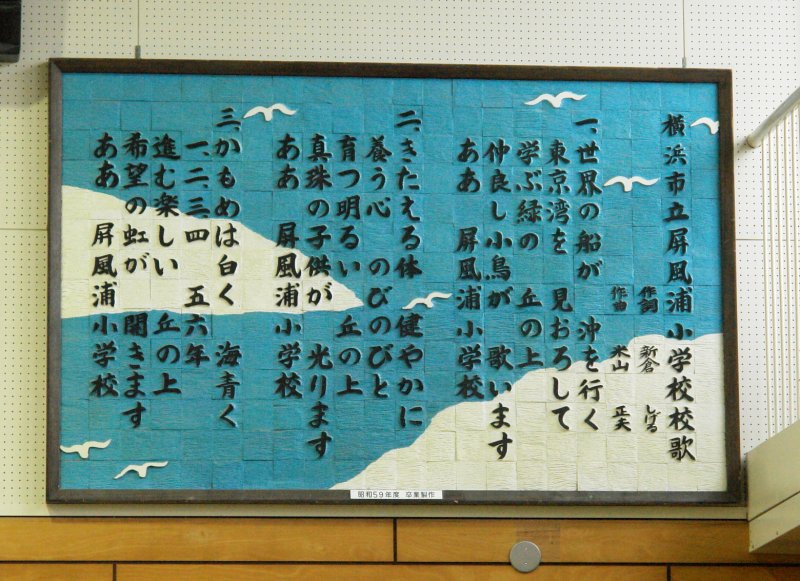 横浜市立屏風浦小学校校歌
作詞 新倉 しげる
作曲 米山 正夫
一、世界の船が 沖を行く
東京湾を 見おろして
学ぶ緑の 丘の上
仲良し小鳥が 歌います
ああ 屏風浦小学校
二、きたえる体 健やかに
養う心 のびのびと
育つ明るい 丘の上
真珠の子供が 光ります
ああ 屏風浦小学校
三、かもめは白く 海青く
一、二、三、四 五六年
進む楽しい 丘の上
希望の虹が 開きます
ああ 屏風浦小学校
昭和59年度 卒業製作